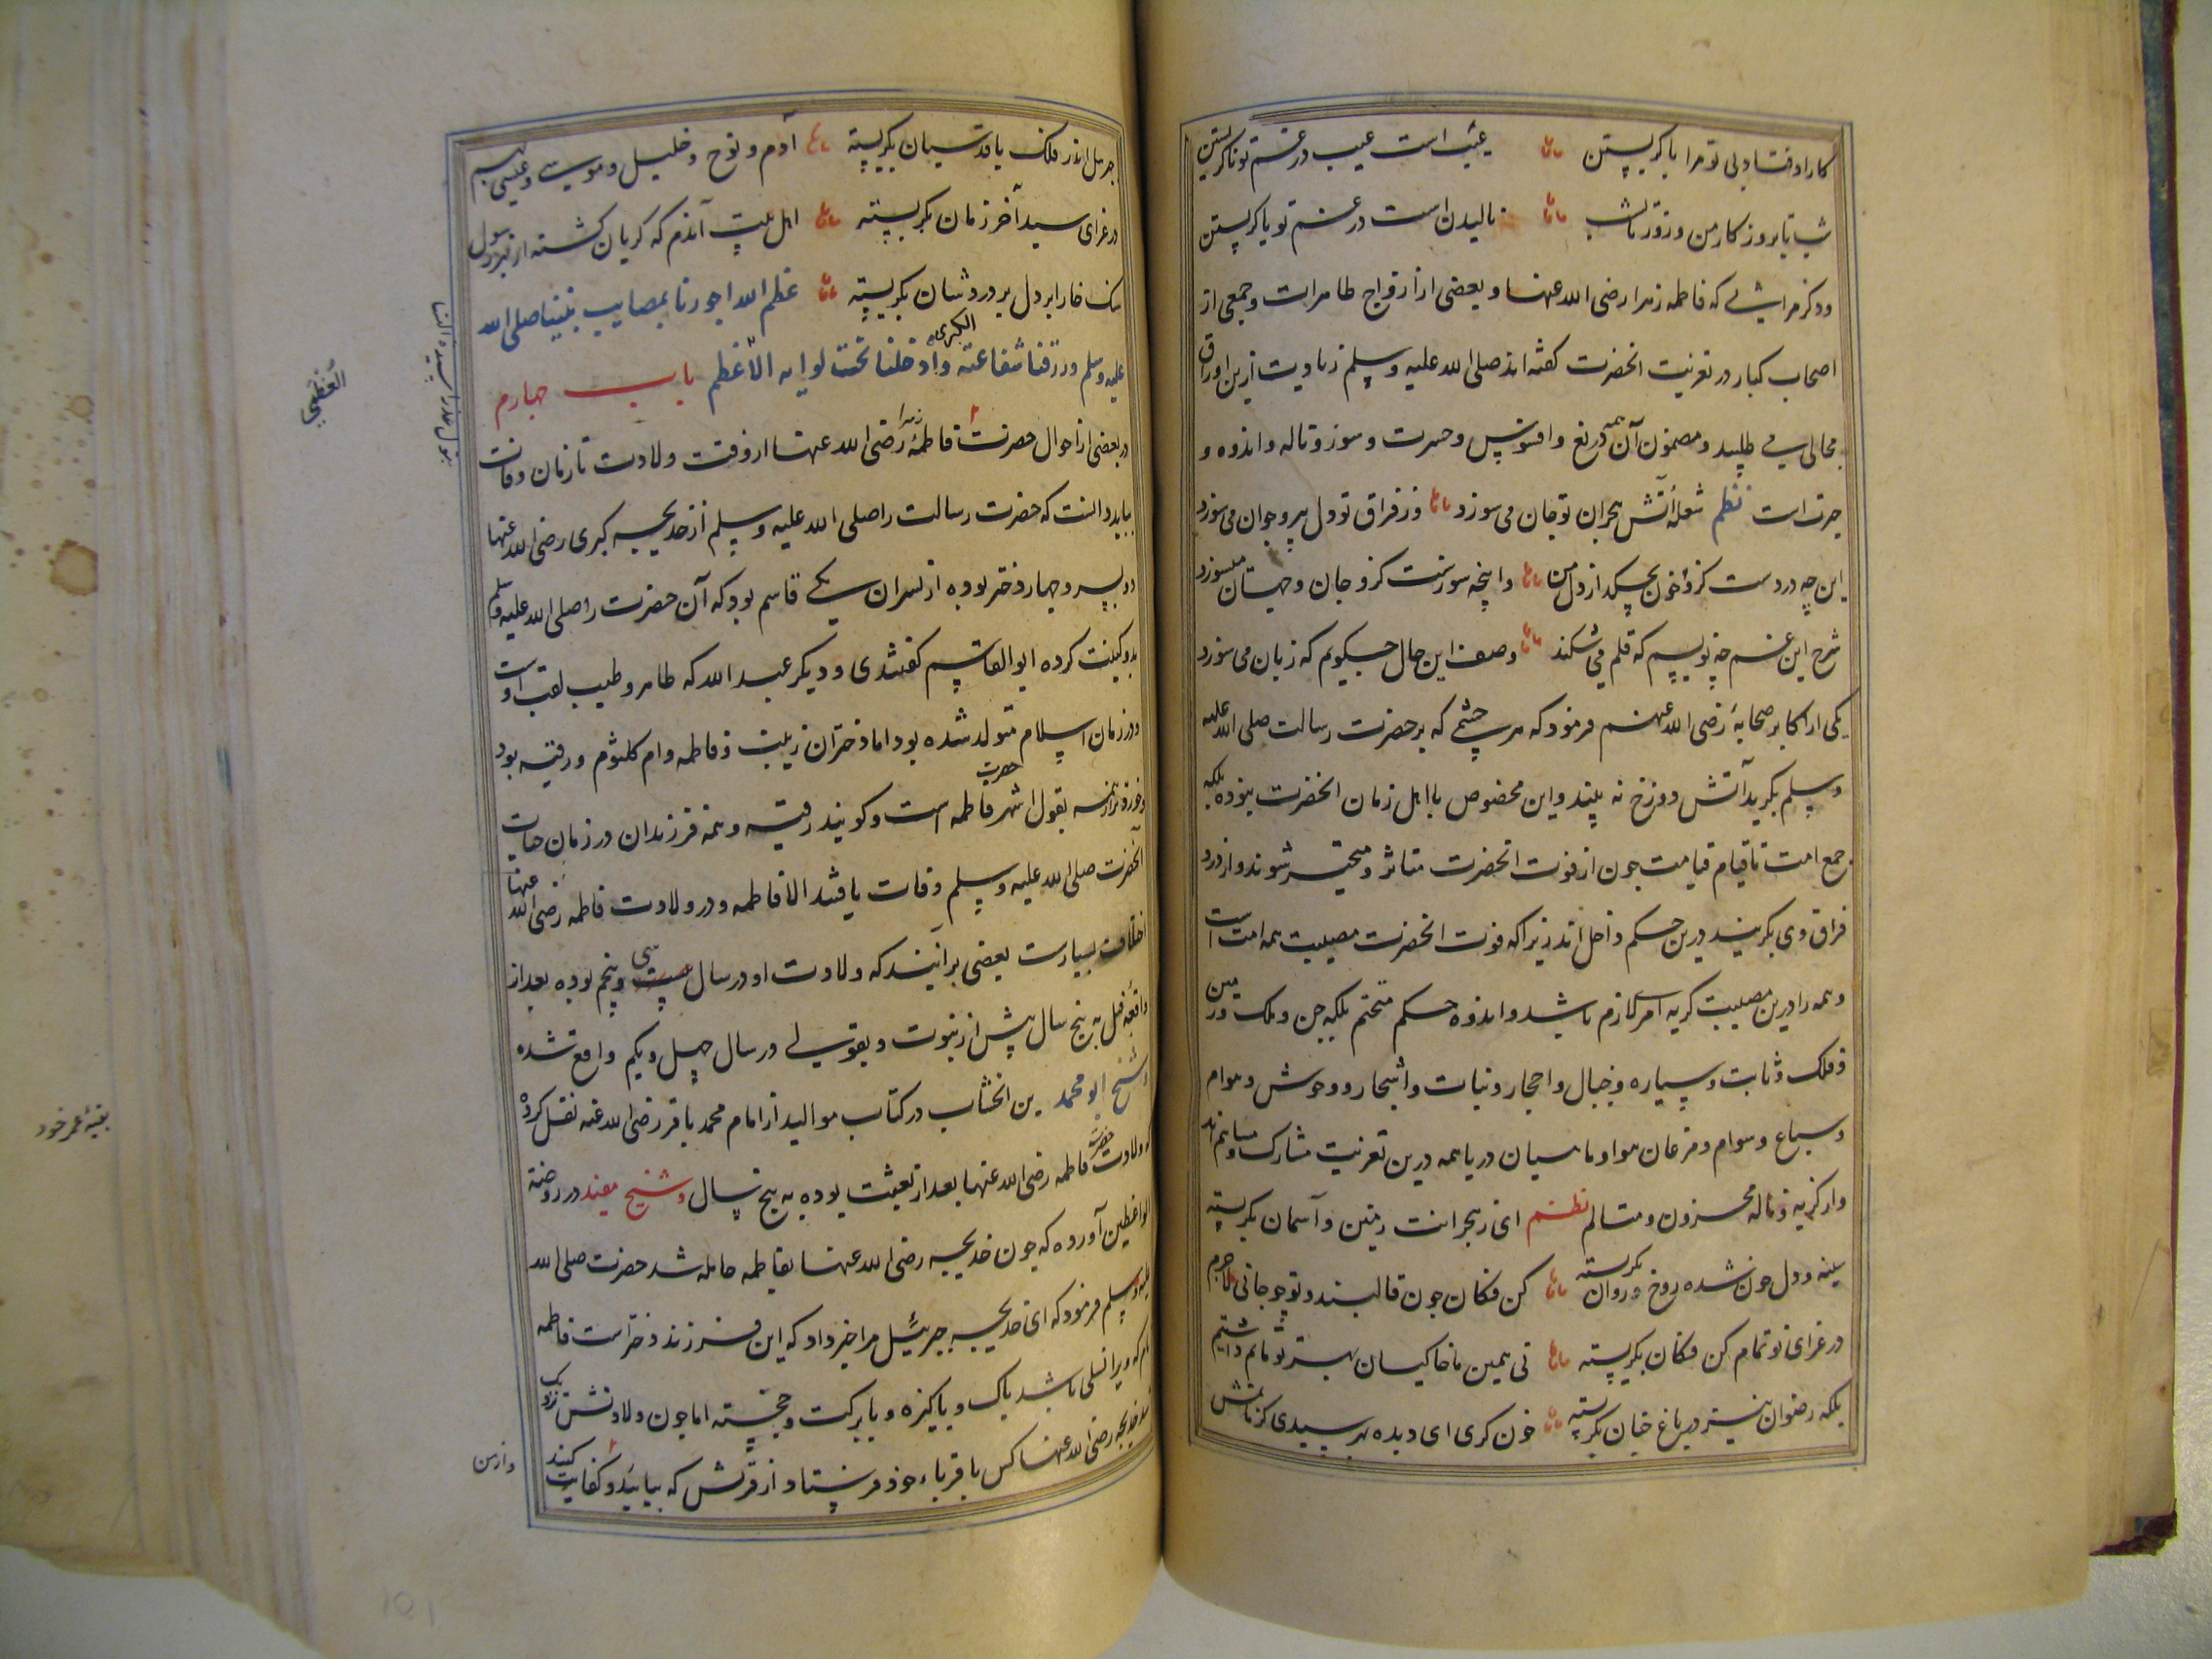 کار اوفتاد بی تو مرا با کریستن عیب است عیب در غم تو ناکریستن
شب تا بروز کار من و روز تا بشب نالیدن است در غم تو یا کریستن
و ذکر مراثی که فاطمه زهرا رضی الله عنها و بعضی از ازواج طاهرات و جمعی از
اصحاب کبار در تعزیت انحضرت کفته اند صلی الله علیه وسلم زیادیت ازین اوراق
مجالی می طلبد و مضمون آن همه دریغ و افسوس و حسرت و سوز و ناله و اندوه و
حیرت است نظم شعلهٔ آتش هجران تو جان می سوزد وز فراق تو دل پیر و جوان می سوزد
این چه دردست کزو خون بچکد از دل من وانچه سوزست کزو جان و جهان میسوزد
شرح این غم چه نویسم که قلم می شکند وصف این حال چکویم که زبان می سوزد
یکی از اکابر صحابهٔ رضی الله عنهم فرمود که هر چشمی که بر حضرت رسالت صلی الله علیه
وسلم بکرید آتش دوزخ نه بیند و این مخصوص با اهل زمان انحضرت نبوده بلکه
جمع امت تا قیام قیامت چون از فوت انحضرت متاثر و متحیر شوند و از درد
فراق وی بکریند درین حکم داخل اند زیراکه فوت انحضرت مصیبت همه امت است
و همه را درین مصیبت کریه امر لازم باشد و اندوه حکم متحتم بلکه جن و ملک و زمین
و فلک و ثابت و سیاره و جبال و احجار و نبات و اشجار و وحوش و هوام
و سباع و سوام و مرغان هوا و ماهیان دریا همه درین تعزیت مشارک و مساهم اند
و از کریه و ناله محزون و متالم نظم ای ز هجرانت زمین و آسمان بکریسته
سینه و دل خون شده روح و روان بکریسته کن فکان چون قالبند و تو چو جانی لاجرم
در عزای تو تمام کن فکان بکریسته نی همین ما خاکیان بهر تو ماتم داشتیم
بلکه رضوان نیز در باغ جنان بکریسته خون کری ای دیده بهر سیدی کز ماتمش
جبریل اندر فلک با قدسیان بکریسته آدم و نوح و خلیل و موسی و عیسی بهم
در عزای سید آخر زمان بکریسته اهل بیت آندم که کریان کشته از بهر رسول
سنک خارا بر دل پر دردشان بکریسته عظم الله اجورنا بمصایب نبینا صلی الله
علیه وسلم ورزقنا شفاعته الکبری وادخلنا تحت لوایه الاعظم باب چهارم
در بعضی از احوال حضرت فاطمهٔ زهرا رضی الله عنها از وقت ولادت تا زمان وفات
بباید دانست که حضرت رسالت را صلی الله علیه وسلم از خدیجه کبری رضی الله عنها
دو پسر و چهار دختر بوده از پسران یکی قاسم بود که آن حضرت را صلی الله علیه وسلم
بدو کنیت کرده ابوالقاسم کفتندی و دیکر عبد الله که طاهر و طیب لقب اوست
و در زمان اسلام متولد شده بود اما دختران زینب و فاطمه و ام کلثوم و رقیه بود
و خورد ترهٔ همه بقول اشهر حضرت فاطمه است و کویند رقیه و همه فرزندان در زمان حیات
آنحضرت صلی الله علیه وسلم وفات یافتند الا فاطمه و در ولادت فاطمه رضی الله عنها
اختلاف بسیارست بعضی برآنند که ولادت او در سال سی و پنجم بوده بعد از
واقعهٔ فیل به پنج سال پیش از نبوت و بقولی در سال چهل و یکم واقع شده
و شیخ ابو محمد بن الخشاب در کتاب موالید از امام محمد باقر رضی الله عنه نقل کرده
که ولادت حضرت فاطمه رضی الله عنها بعد از بعثت بوده به پنج سال و شیخ مفید در روضة
الواعظین آورده که چون خدیجه رضی الله عنها بفاطمه حامله شد حضرت صلی الله
علیه وسلم فرمود که ای خدیجه جبرئیل مرا خبر داد که این فرزند دختر است فاطمه
نام که ویرا نسلی باشد پاک و پاکیزه و با برکت و خجسته اما چون ولادتش نزدیک
شد خدیجه رضی الله عنها کس باقرباء خود فرستاد از قریش که بیایند و کفایت کنید
العظمی
بتول عذرا سیدة النسا
بقیهٔ عمر خود
و از من
101